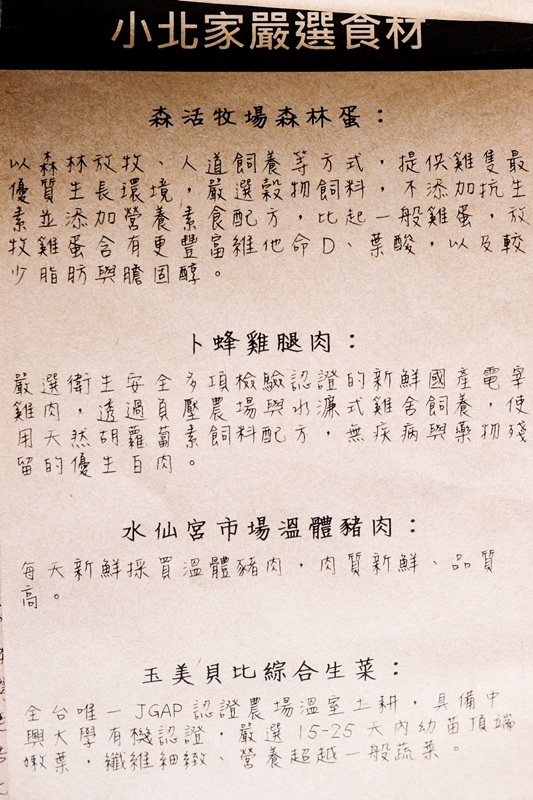 小北家嚴選食材
森活牧場森林蛋：
以森林放牧、人道飼養等方式，提供雞隻最
優質生長環境，嚴選穀物飼料，不添加抗生
素並添加營養素食配方，比起一般雞蛋，放
牧雞蛋含有更豐富維他命D、葉酸，以及較
少脂肪與膽固醇。
卜蜂雞腿肉：
嚴選衛生安全多項檢驗認證的新鮮國產電宰
雞肉，透過負壓農場與水濂式雞舍飼養，使
用天然胡蘿蔔素飼料配方，無疾病與藥物殘
留的優生白肉。
水仙宮市場溫體豬肉：
每天新鮮採買溫體豬肉，肉質新鮮、品質
高。
玉美貝比綜合生菜：
全台唯一JGAP認證農場溫室土耕，具備中
興大學有機認證，嚴選15-25天內幼苗頂端
嫩葉，纖維細緻、營養超越一般蔬菜。